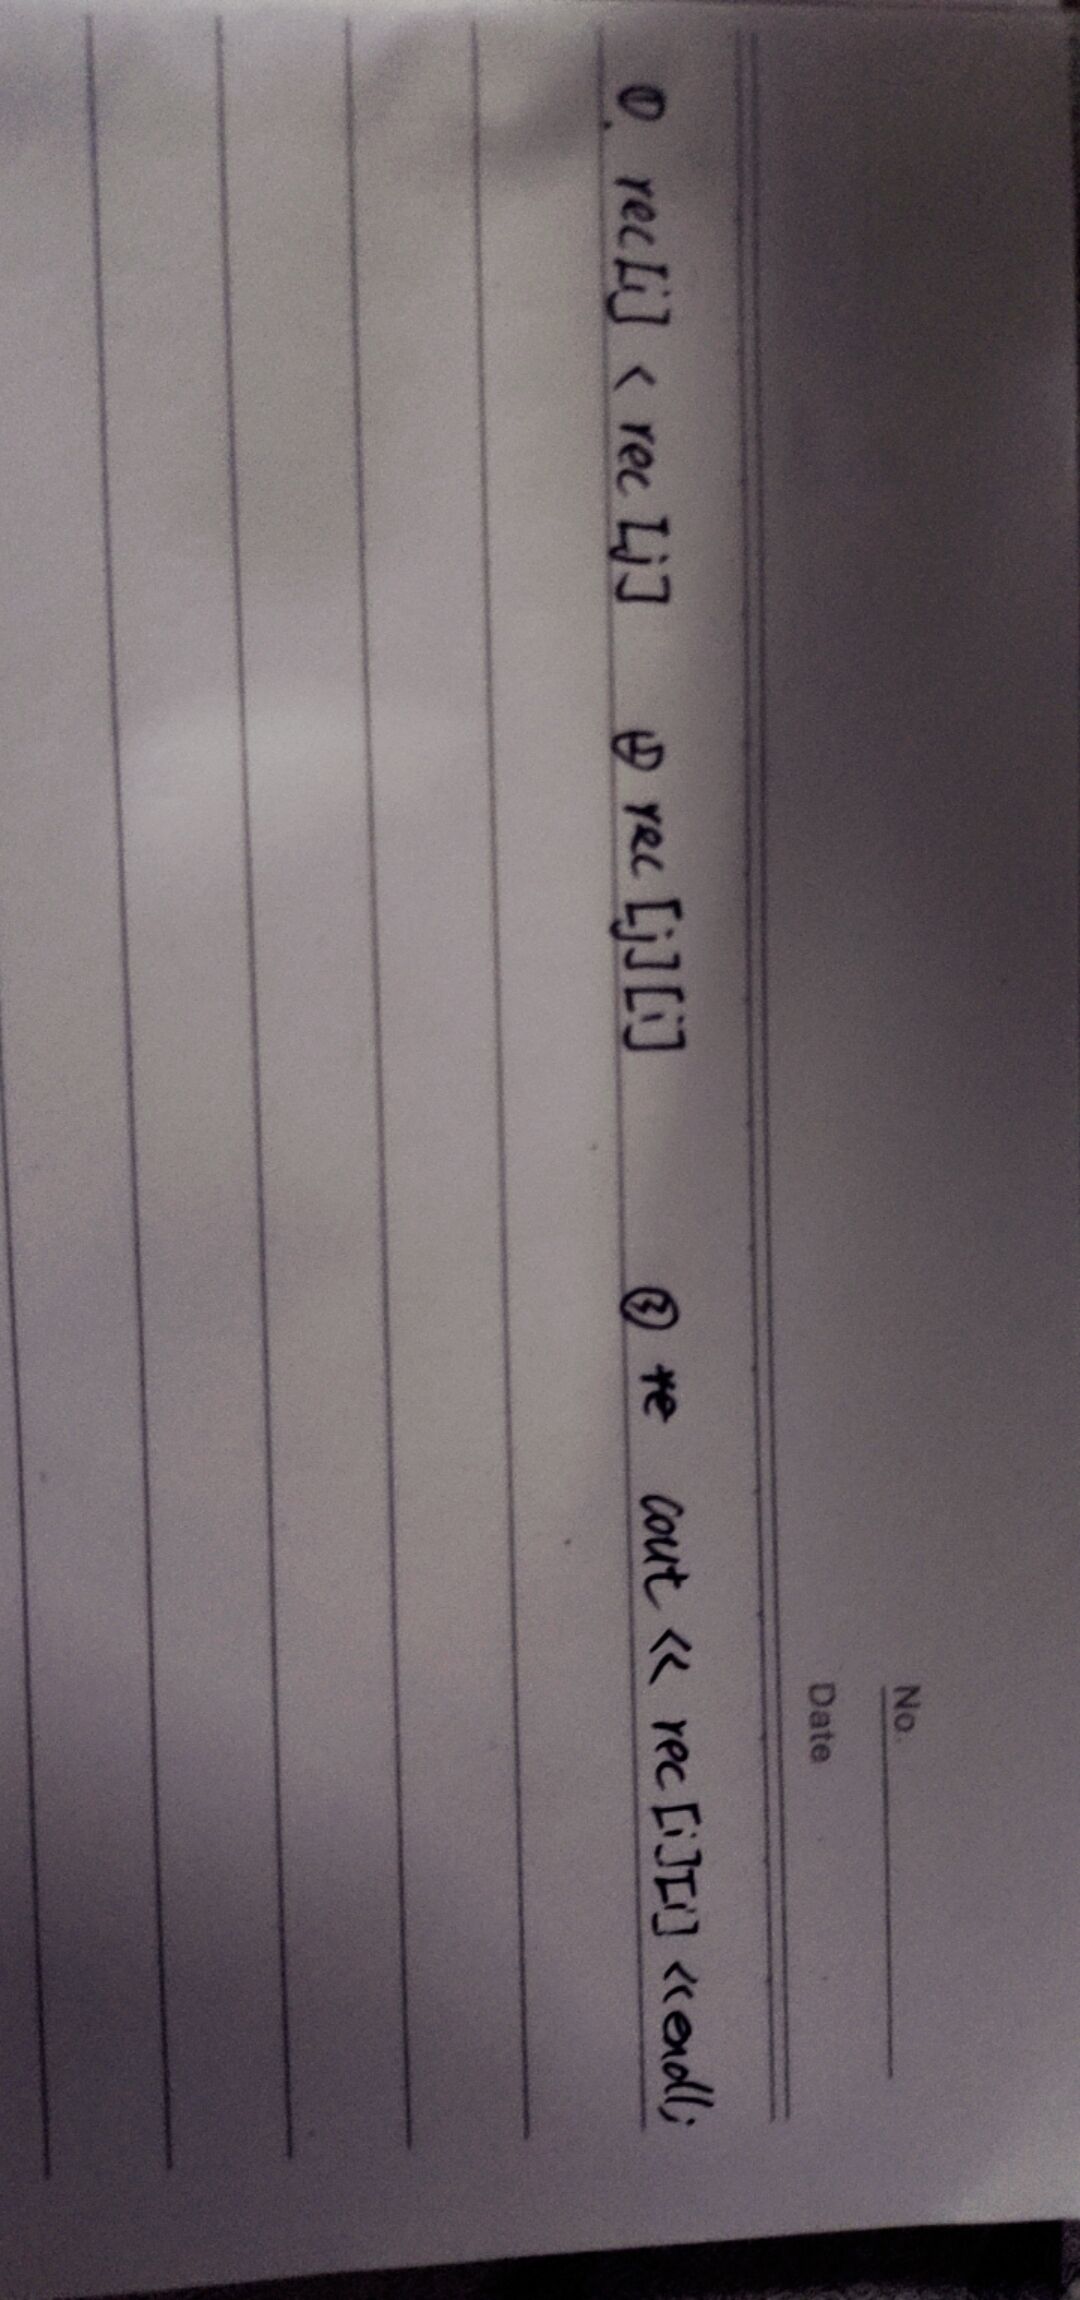 No.
Date
①. rec[i] < rec[j] ④ rec[j][i] ③ cout << rec[i][i] <<endl;